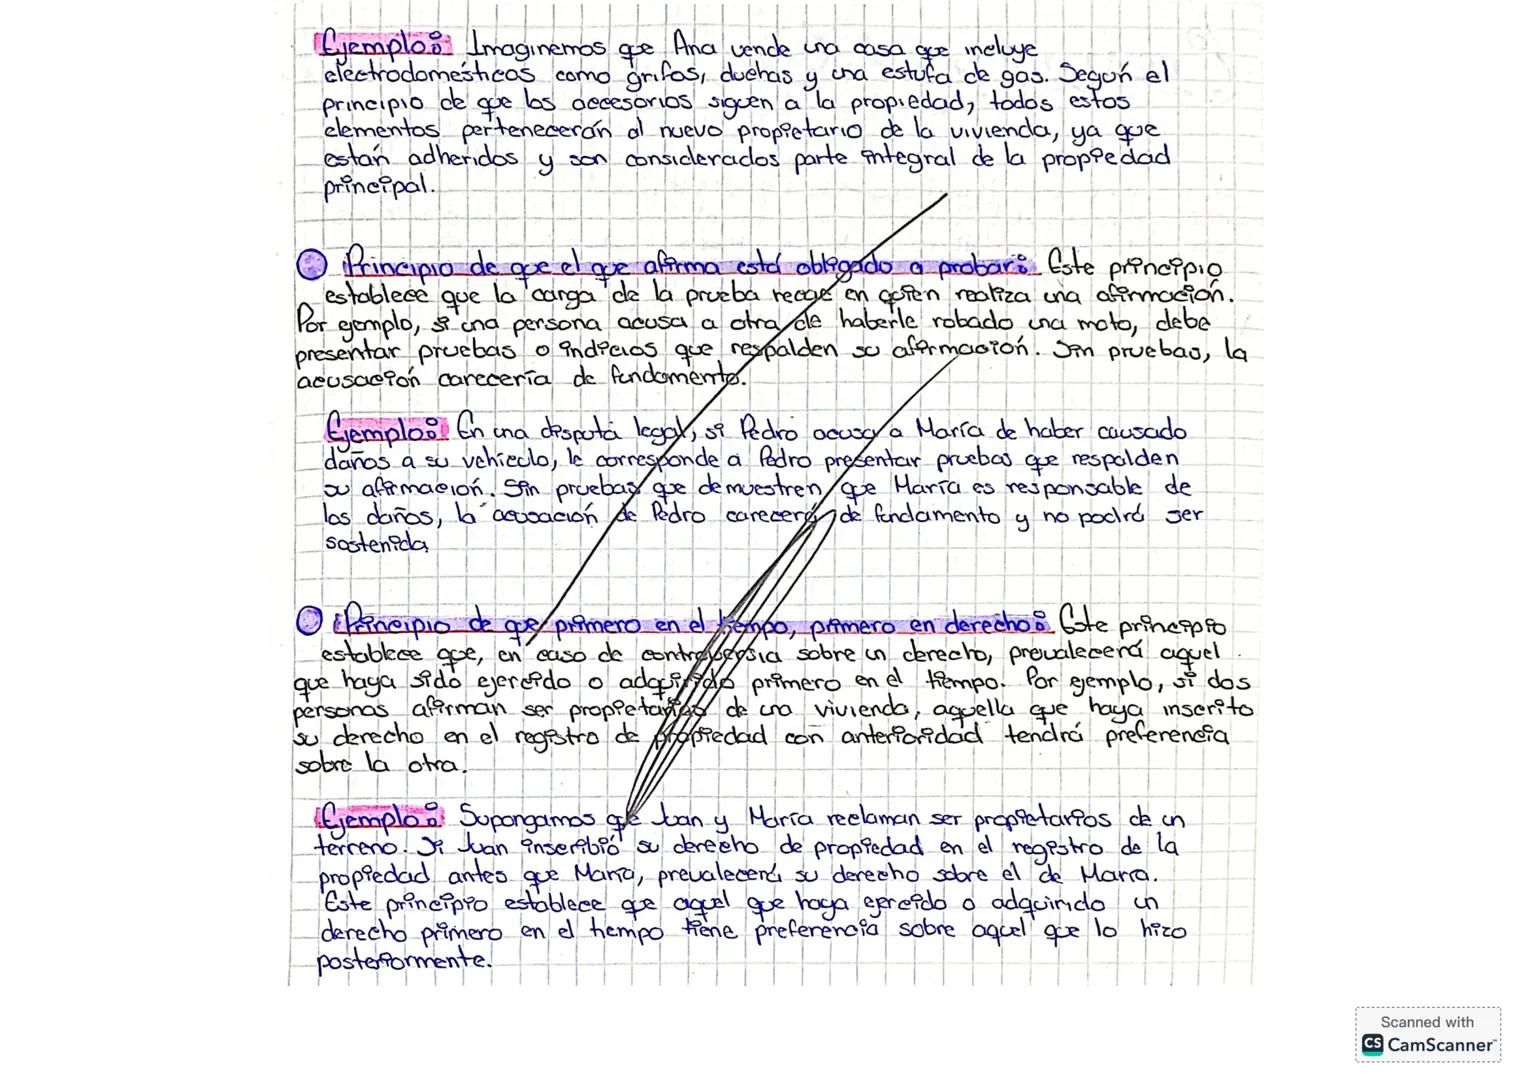 Ejemplo: Imaginemos que Ana vende una casa que incluye
electrodomésticos como grifos, duchas y una estufa de gas. Según el
principio de que los accesorios siguen a la propiedad, todos estos
elementos pertenecerán al nuevo propietario de la vivienda, ya que
están adheridos y son considerados parte integral de la propiedad
principal.
Principio de que el que afirma está obligado a probar: Este principio
establece que la carga de la prueba recae en quien realiza una afirmación.
Por ejemplo, si una persona acusa a otra de haberle robado una moto, debe
presentar pruebas o indicios que respalden su afirmación. Sin pruebas, la
acusación carecería de fundamento.
Ejemplo: En una disputa legal, si Pedro acusa a María de haber causado
daños a su vehículo, le corresponde a Pedro presentar pruebas que respalden
su afirmación. Sin pruebas que demuestren que María es responsable de
los daños, la acusación de Pedro carecerá de fundamento y no podrá ser
sostenida
Principio de que primero en el tiempo, primero en derecho: Este principio
establece que, en caso de controversia sobre un derecho, prevalecerá aquel
que haya sido ejercido o adquirido primero en el tiempo. Por ejemplo, si dos
personas afirman ser propietarios de una vivienda, aquella que haya inscrito
su derecho en el registro de propiedad con anterioridad tendrá preferencia
sobre la otra.
Ejemplo: Supongamos que Juan y María reclaman ser propietarios de un
terreno. Si Juan inscribió su derecho de propiedad en el registro de la
propiedad antes que María, prevalecerá su derecho sobre el de María.
Este principio establece que aquel que haya ejercido o adquirido un
derecho primero en el tiempo tiene preferencia sobre aquel que lo hizo
posteriormente.
Scanned with
CS CamScanner